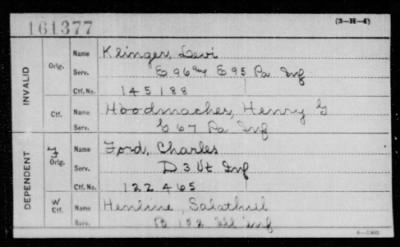 161377
(3-H-4)
INVALID
Orig. Name Klinger, Levi
Serv. E 96 & E 95 Pa Inf
Ctf. No. 145188
Ctf. Name Hoodmacher, Henry G
Serv. G 67 Pa Inf
DEPENDENT
Orig. Name Ford, Charles
Serv. D 3 Vt Inf
Ctf. No. 122465
W Ctf. Name Henline, Salathiel
Serv. B 152 Ill Inf